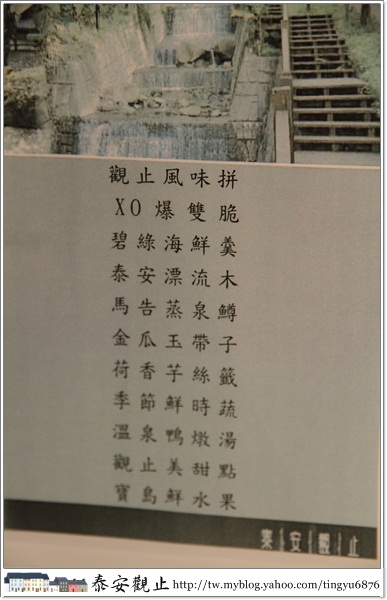 觀止風味拼
XO爆雙脆
碧綠海鮮羹
泰安漂流木
馬告蒸泉鱒
金瓜玉帶子
荷香芋絲籤
季節鮮時蔬
溫泉鴨燉湯
觀止美甜點
寶島鮮水果
泰安觀止
泰安觀止 http://tw.myblog.yahoo.com/tingyu6876